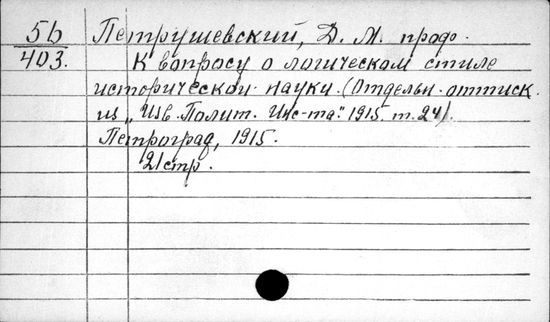 5б Петрушевский, Д. М. проф.
403. К вопросу о логическом стиле
исторической науки. (Отдельн. оттиск
из „Изв. Полит. Инс-та." 1915. т. 24).
Петроград, 1915.
21стр.